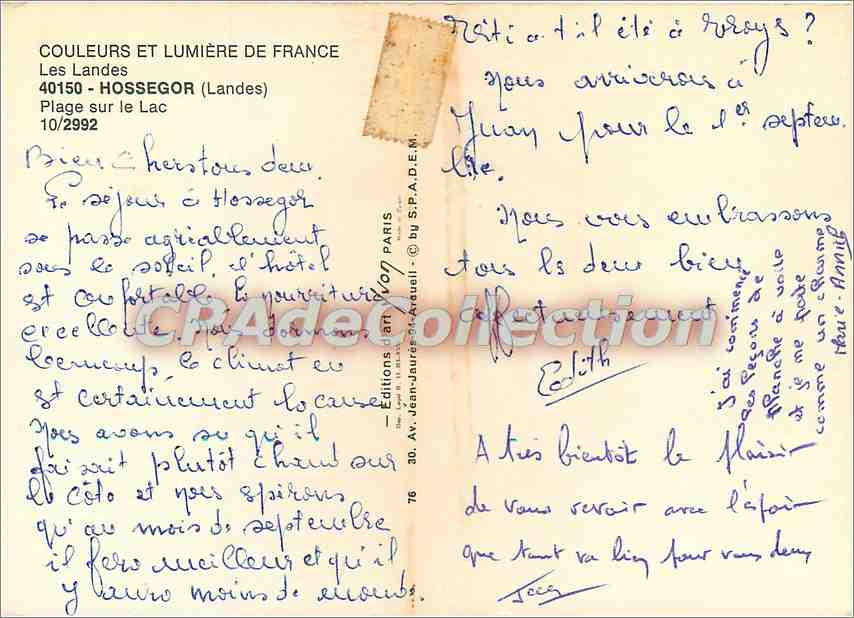 COULEURS ET LUMIÈRE DE FRANCE
Les Landes
40150 - HOSSEGOR (Landes)
Plage sur le Lac
10/2992
Bien chers tous deux.
Le séjour à Hossegor
se passe agréablement
sous le soleil, l'hôtel
est confortable la nourriture
excellente. Nous dormons
beaucoup, le climat en
est certainement la cause
Nous avons su qu'il
faisait plutôt chaud sur
la côte et nous espérons
qu'au mois de septembre
il fera meilleur et qu'il
y aura moins de monde.
— Editions d'art Yvon PARIS
30, Av. Jean-Jaurès 94-Arcueil - © by S.P.A.D.E.M.
76
a t'il été à
Nous arriverons à
Juan pour le 1er septem
bre.
Nous vous embrassons
tous les deux bien
affectueusement
Edith
j'ai commencé
des leçons de
planche à voile
et je me porte
comme un charme
Marie-Annick
A très bientôt le plaisir
de vous revoir avec l'espoir
que tout va bien pour vous deux
CPAdeCollection.com